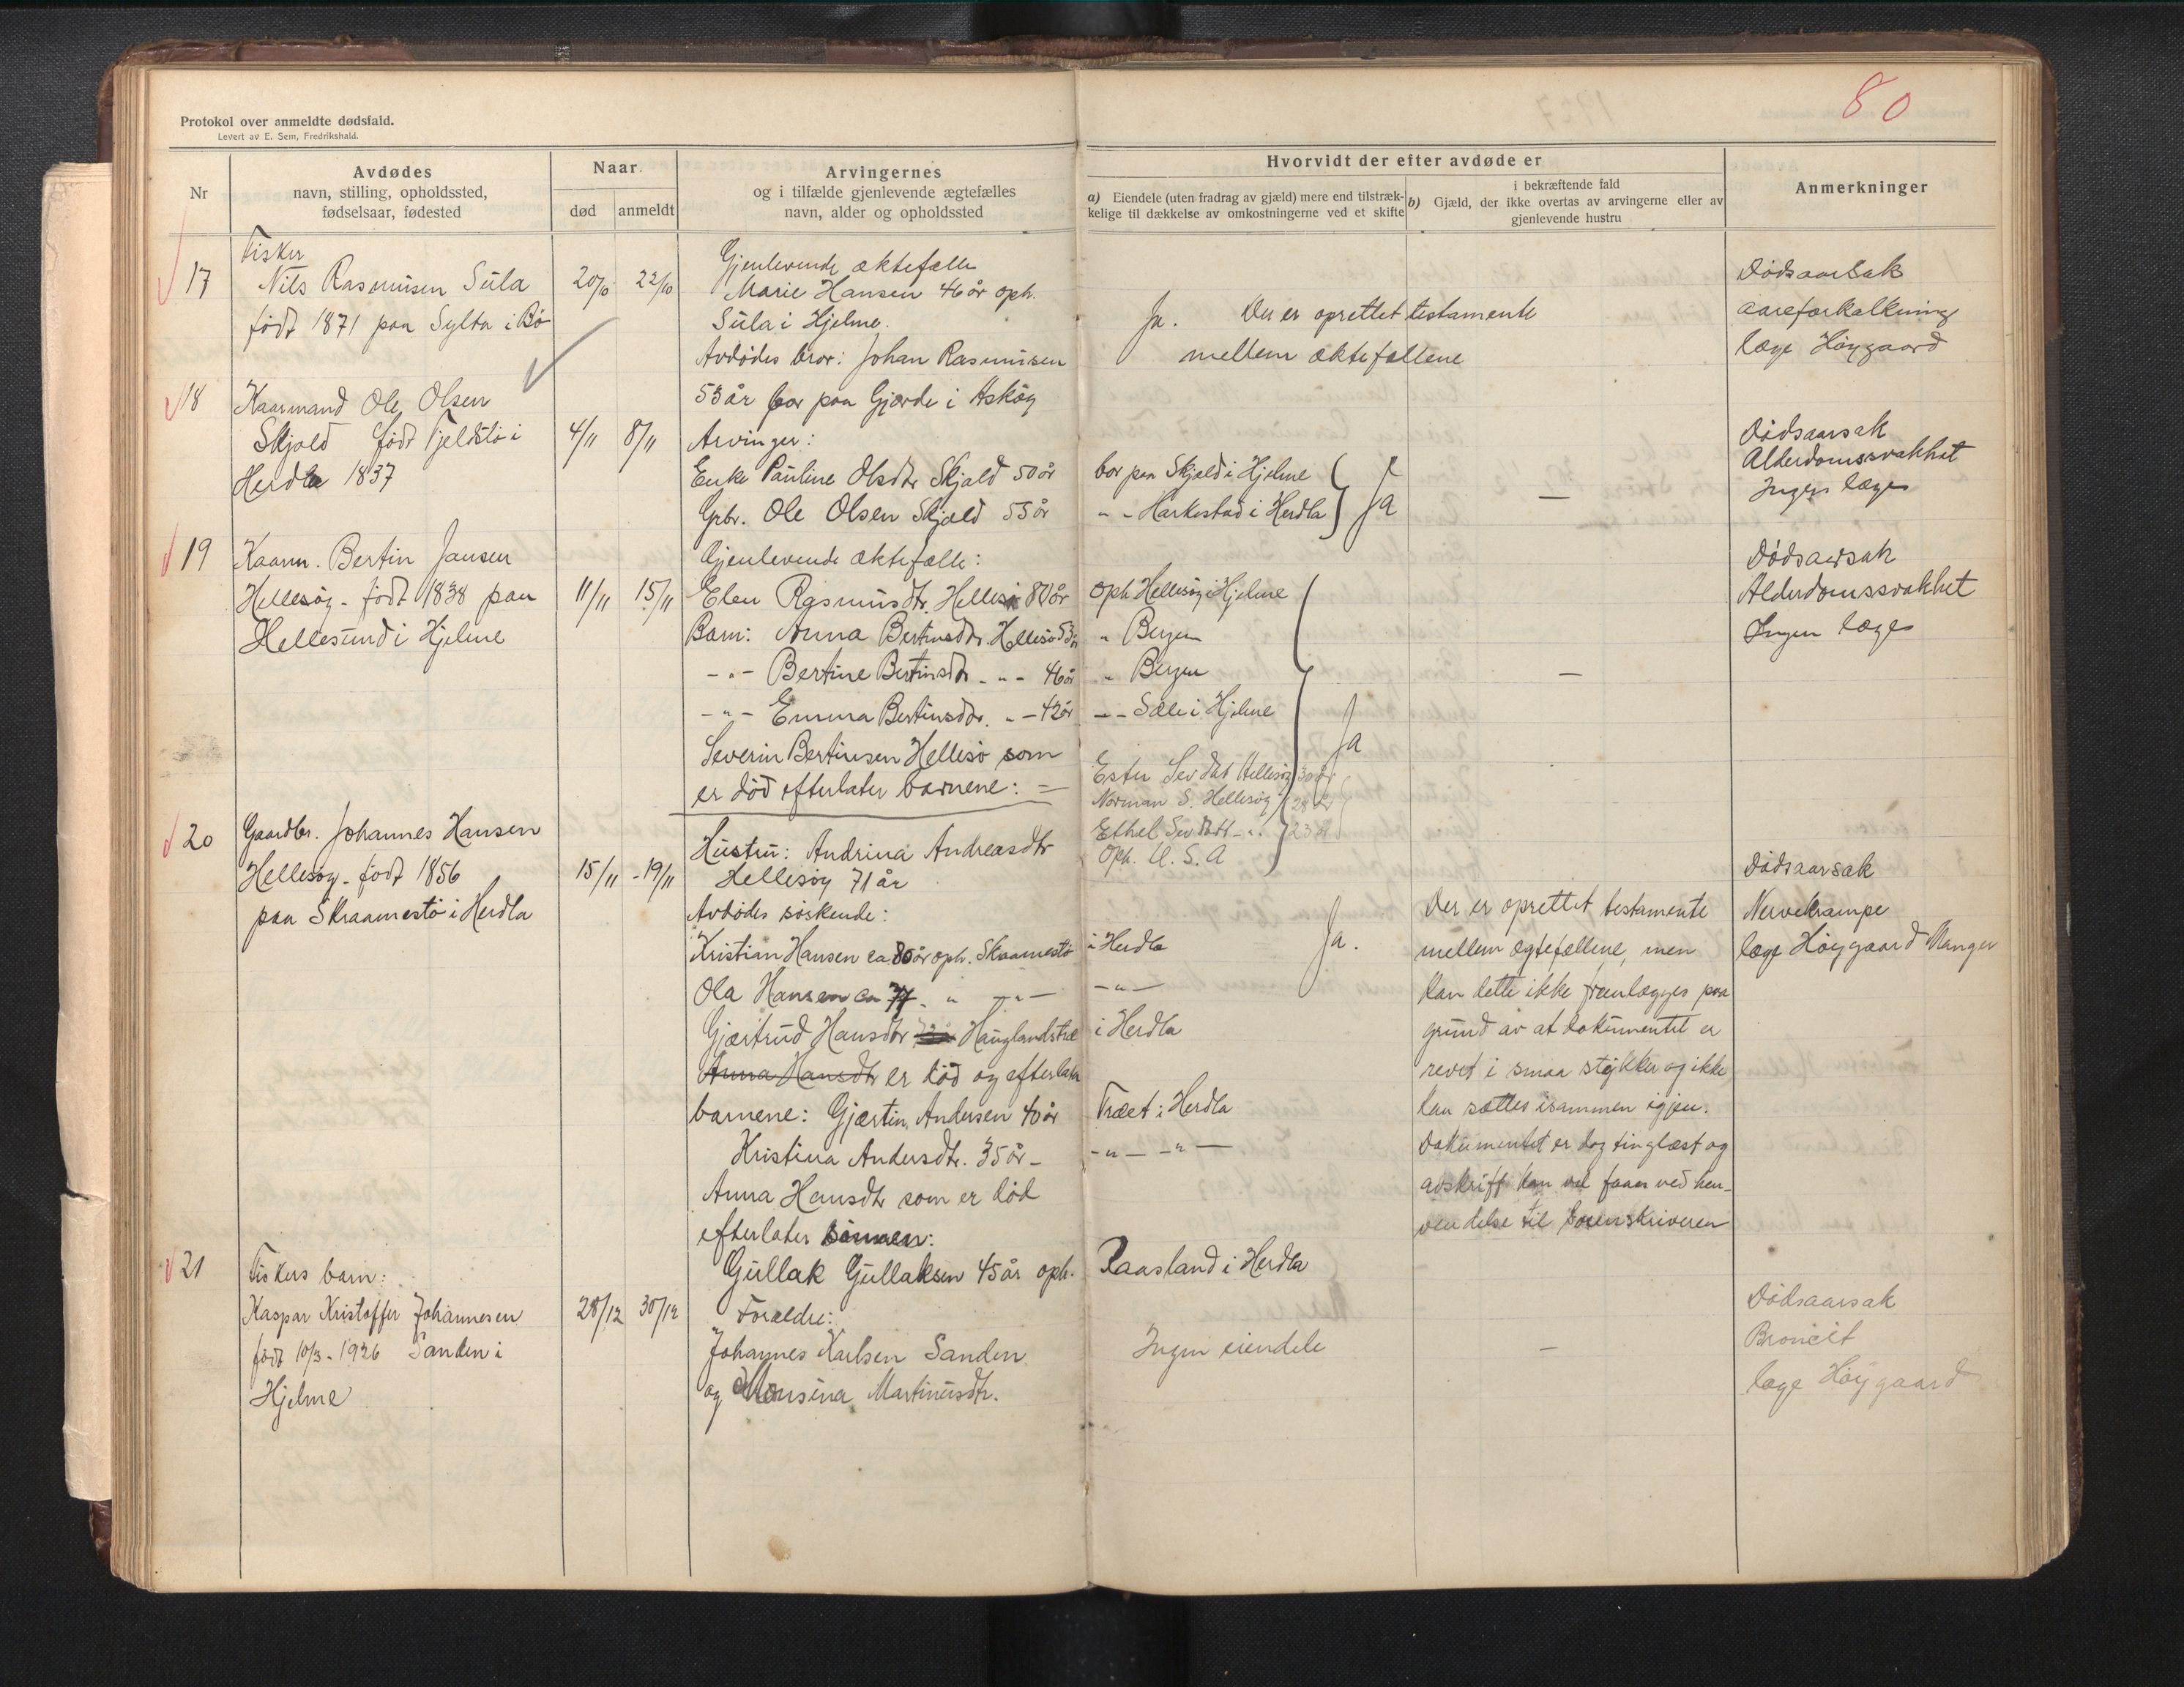 80
Protokol over anmeldte dødsfald.
Levert av E. Sem, Fredrikshald.
Nr
Avdødes
navn, stilling, opholdssted,
fødselsaar, fødested
Naar
død
anmeldt
Arvingernes
og i tilfælde gjenlevende ægtefælles
navn, alder og opholdssted
Hvorvidt der efter avdøde er
a) Eiendele (uten fradrag av gjæld) mere end tilstræk-
kelige til dækkelse av omkostningerne ved et skifte
i bekræftende fald
b) Gjæld, der ikke overtas av arvingerne eller av
gjenlevende hustru
Anmerkninger
17
Fisker
Nils Rasmusen Sula
født 1871 paa Sylta i Bø
20/10
22/10
Gjenlevende ektefælle
Marie Hansen 46 år oph.
Sula i Hjelme.
Avdødes bror: Johan Rasmusen
53 år bor paa Gjerde i Askøy
Ja. Der er oprettet testamente
mellem ektefellene
Dødsaarsak
aareforkalkning
læge Høygaard
18
Kaarmand Ole Olsen
Skjold født Fjeldstø i
Herdla 1837
4/11
8/11
Arvinger:
Enke Pauline Olsdtr Skjold 50 år
Gbr. Ole Olsen Skjold 55 år
bor paa Skjold i Hjelme
" - Harkestad i Herdla
Ja
—
Dødsaarsak
Alderdomssvakhet
Ingen læge
19
Kaarm. Bertin Jansen
Hellesøy - født 1838 paa
Hellesund i Hjelme
11/11
15/11
Gjenlevende ektefælle:
Elen Rasmusdtr. Hellesø 80 år
Barn: Anna Bertinsdtr. Hellesø 53 år
- " - Bertine Bertinsdtr - " - 46 år
- " - Emma Bertinsdtr. - " - 42 år
Severin Bertinsen Hellesø som
er død efterlater barnene: =
Oph. Hellesøy i Hjelme
" Bergen
" Bergen
- - Sæle i Hjelme
Ester Sevdat Hellesøy 30 år
Norman S. Hellesøy 28 år
Ethel Sevdatt - " - 23 år
Oph. U. S. A
Ja
—
Dødsaarsak
Alderdomssvakhet
Ingen læge
20
Gaardbr. Johannes Hansen
Hellesøy - født 1856
paa Skraamestø i Herdla
15/11
- 19/11
Hustru: Andrina Andreasdtr
Hellesøy 71 år
Avdødes søskende:
Kristian Hansen ca 80 år oph. Skraamestø
Ola Hansen ca 77 - " - " -
Gjærtrud Hansdtr Hauglandstræ
Anna Hansdtr er død og efterlater
barnene: Gjærtin Andersen 40 år
Kristina Andersdtr. 35 år -
Anna Hansdtr som er død
efterlater sønnen:
Gullak Gullaksen 45 år oph.
i Herdla
- " -
i Herdla
Træet i Herdla
- " - - " -
Raasland i Herdla
Ja.
Der er oprettet testamente
mellem ægtefællene, men
kan dette ikke fremlægges paa
grund av at dokumentet er
revet i smaa stykker og ikke
kan sættes isammen igjen.
Dokumentet er dog tinglæst og
avskrift kan vel faaes ved hen-
vendelse til Sorenskriveren
Dødsaarsak
Nervekrampe
læge Høygaard Manger
21
Fiskers barn:
Kaspar Kristoffer Johannesen
født 10/3 - 1926 Sanden i
Hjelme
28/12
30/12
Foreldre:
Johannes Karlsen Sanden
og Monsina Martinusdtr.
Ingen eiendele
—
Dødsaarsak
Broncit
læge Høygaard